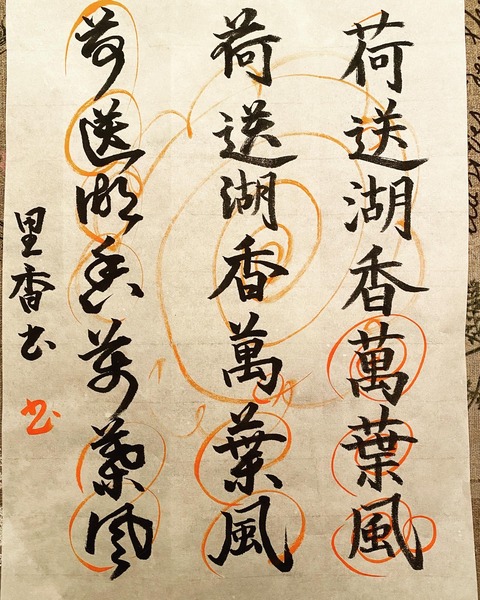 荷送湖香萬葉風
荷送湖香萬葉風
荷送湖香萬葉風
里香书
书